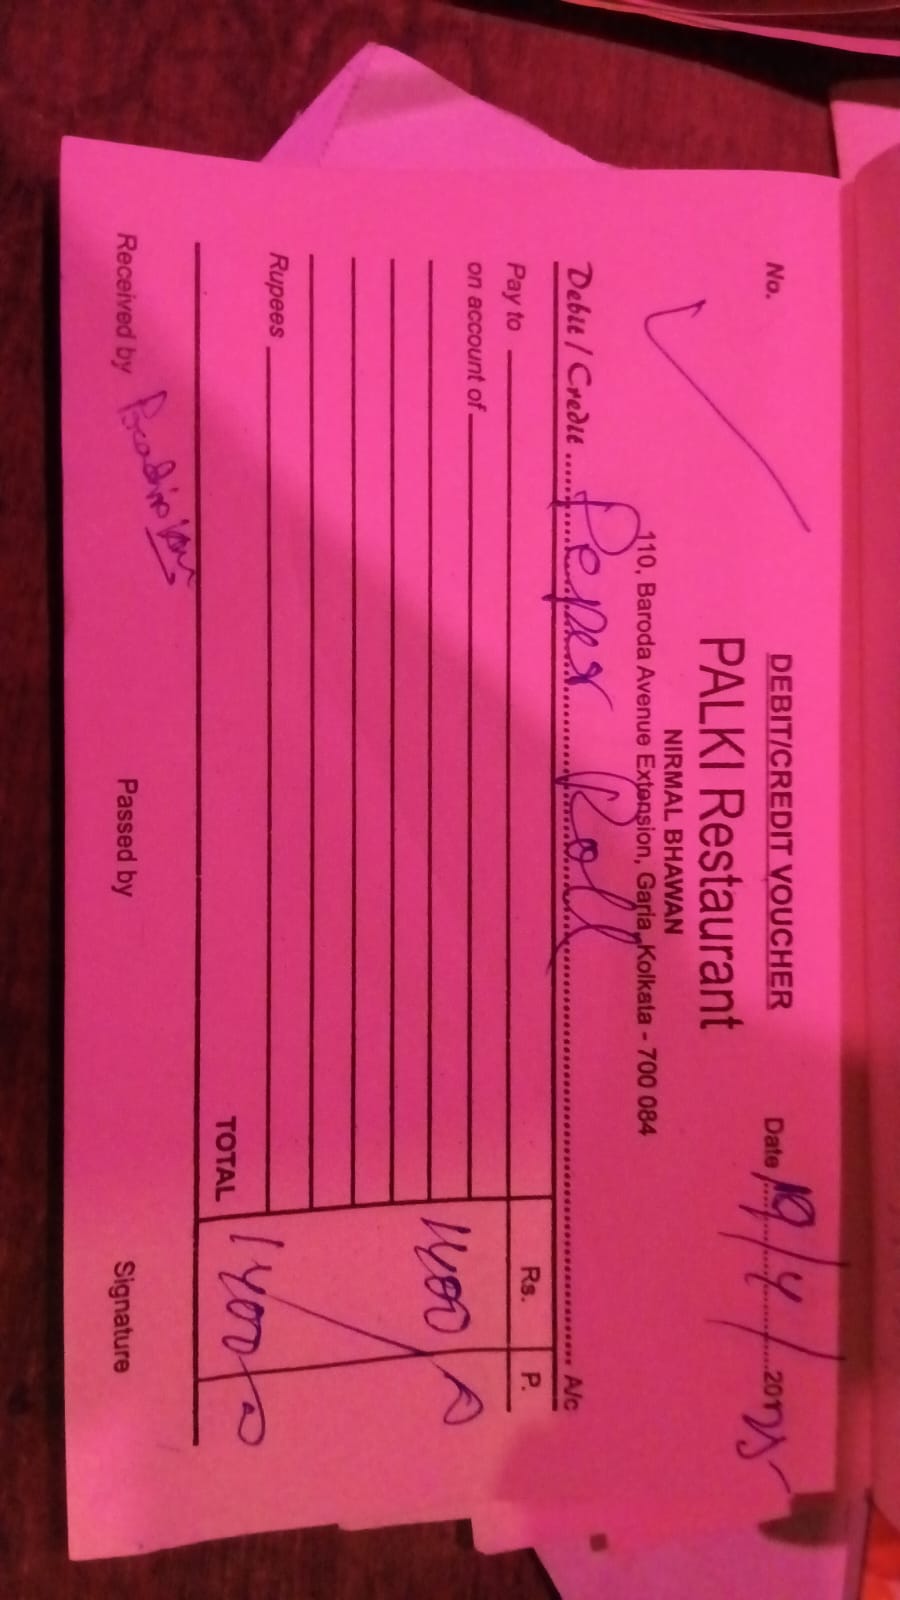 DEBIT/CREDIT VOUCHER
No. Date 19/4/2025
PALKI Restaurant
NIRMAL BHAWAN
110, Baroda Avenue Extension, Garia, Kolkata - 700 084
Debit / Credit Peper Roll A/c
Pay to Rs. P.
on account of
1400
Rupees
TOTAL 1400
Received by Passed by Signature